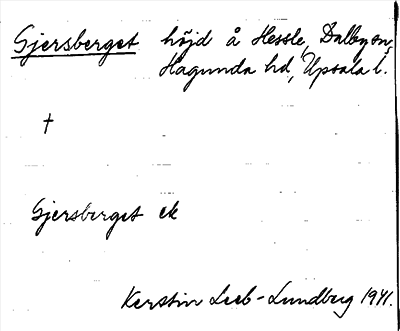 Gjersberget höjd å Hessle, Dalby sn,
Hagunda hd, Upsala l.
†
Gjersberget ek
Kerstin Leeb-Lundberg 1941.